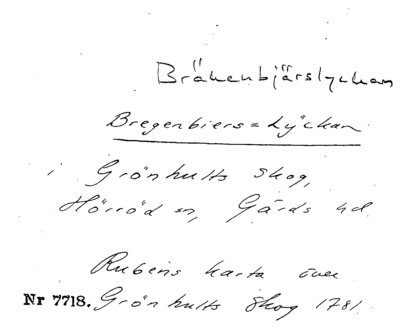 Bräkenbjärslyckan
Bregenbiers=Lÿckan
i Grönhults skog,
Hörröd sn, Gärds hd
Rubens karta över
Nr 7718. Grönhults skog 1781.